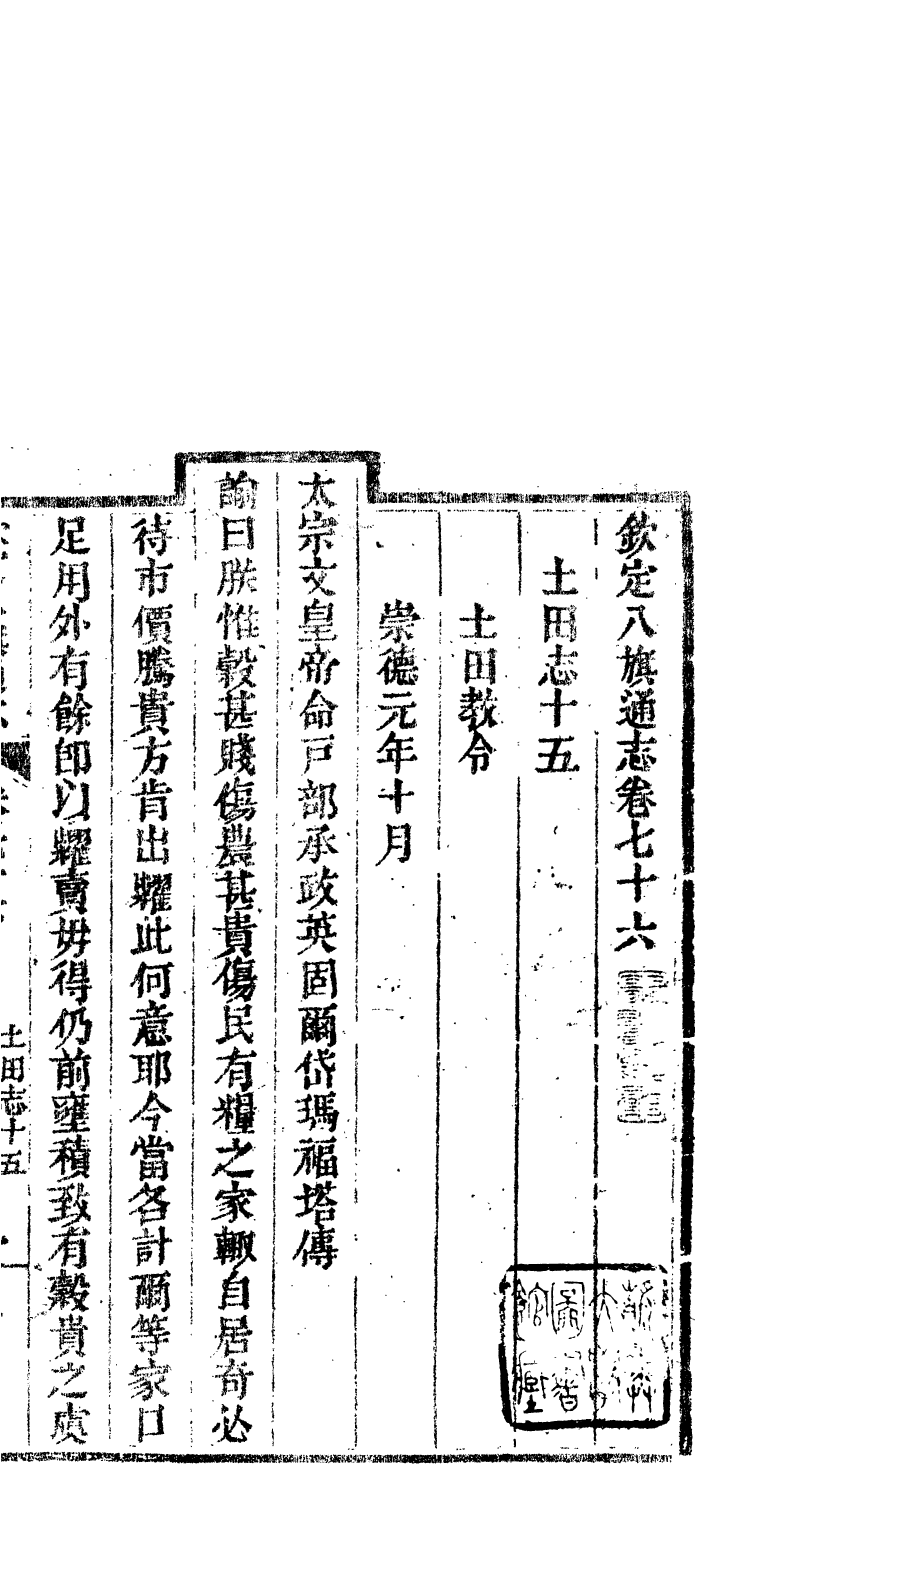 欽定八旗通志卷七十六
土田志十五
土田教令
崇德元年十月
太宗文皇帝命戸部承政英固爾岱瑪福塔傳
諭曰朕惟穀甚賤傷農甚貴傷民有糧之家輙自居奇必
待市價騰貴方肯出糶此何意耶今當各計爾等家口
足用外有餘卽以糶賣毋得仍前壅積致有穀貴之虞
土田志十五